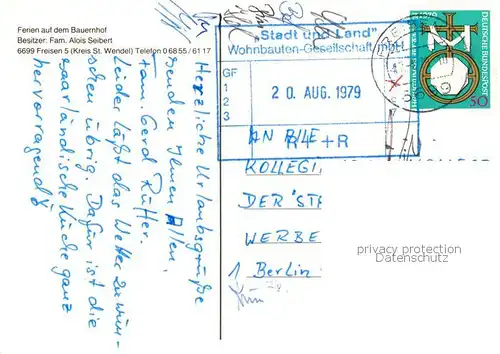 Ferien auf dem Bauernhof
Besitzer: Fam. Alois Seibert
6699 Freisen 5 (Kreis St. Wendel) Telefon 0 68 55 / 61 17
Herzliche Urlaubsgrüße
senden Ihnen Allen
Fam. Gerd Rütter.
Leider läßt das Wetter zu wün-
schen übrig. Dafür ist die
saarländische Küche ganz
hervorragend!
"Stadt und Land"
Wohnbauten-Gesellschaft mbH
GF
1
2
3
20. AUG. 1979
R4+R
DEUTSCHE BUNDESPOST
50
AN
KOLLEGI
DER "ST
WERBE
1 Berlin
privacy protection
Datenschutz